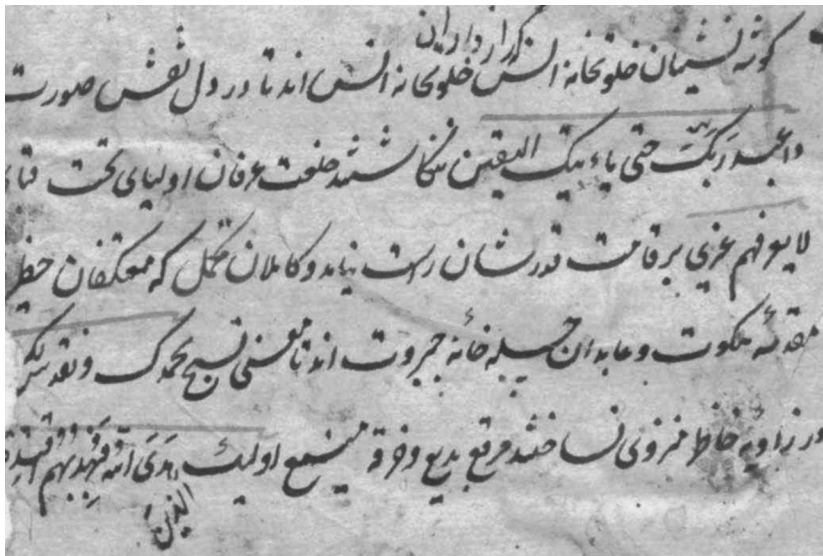 گذارداران
گوشه نشینان خلوتخانه انس خلوتخانه انس اند تا در دل نقش صورت
واعبد ربک حتی یاتیک الیقین ننگاشتند خلعت عرفان اولیای تحت قبای
لا یعرفهم غیری بر قامت قدرشان راست نیاید و کاملان مکمل که معتکفان حظیر
مقدسه ملکوت و عابدان خانه جبروت اند تا معنی نسبح بحمدک و نقدس لک
در زاویه خاطر فزونی نساختند مرقع بدیع وخرقه منیع اولیک هدی الله فبهدیهم اقتده
الذین